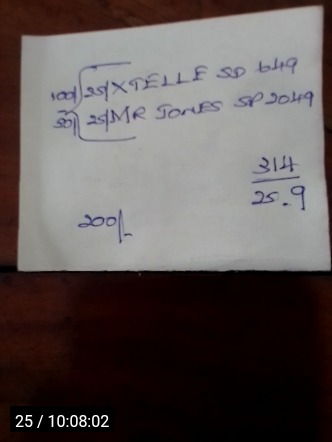 100/ 25/ XTELLE SD 649
50/ 25/ MR JONES SP 2049
314
25.9
200/-
25 / 10:08:02